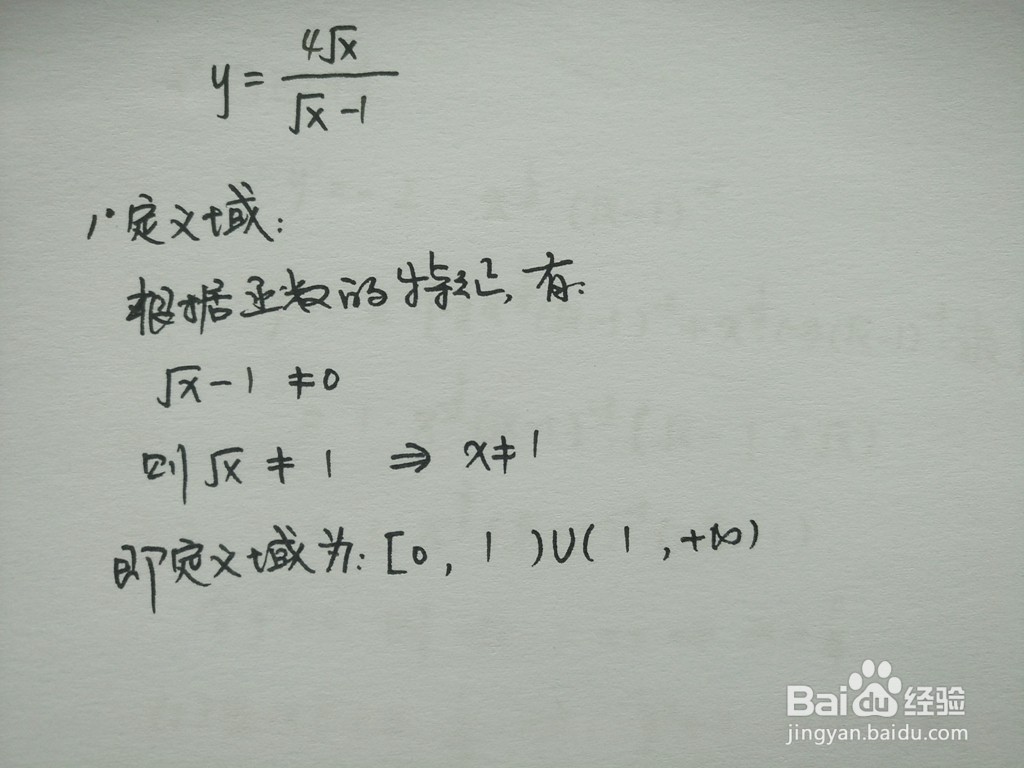 y = 4√x / (√x - 1)
1° 定义域:
根据函数的特征, 有:
√x - 1 ≠ 0
则 √x ≠ 1 ⇒ x ≠ 1
即定义域为: [0, 1)∪(1, +∞)
Baidu经验
jingyan.baidu.com